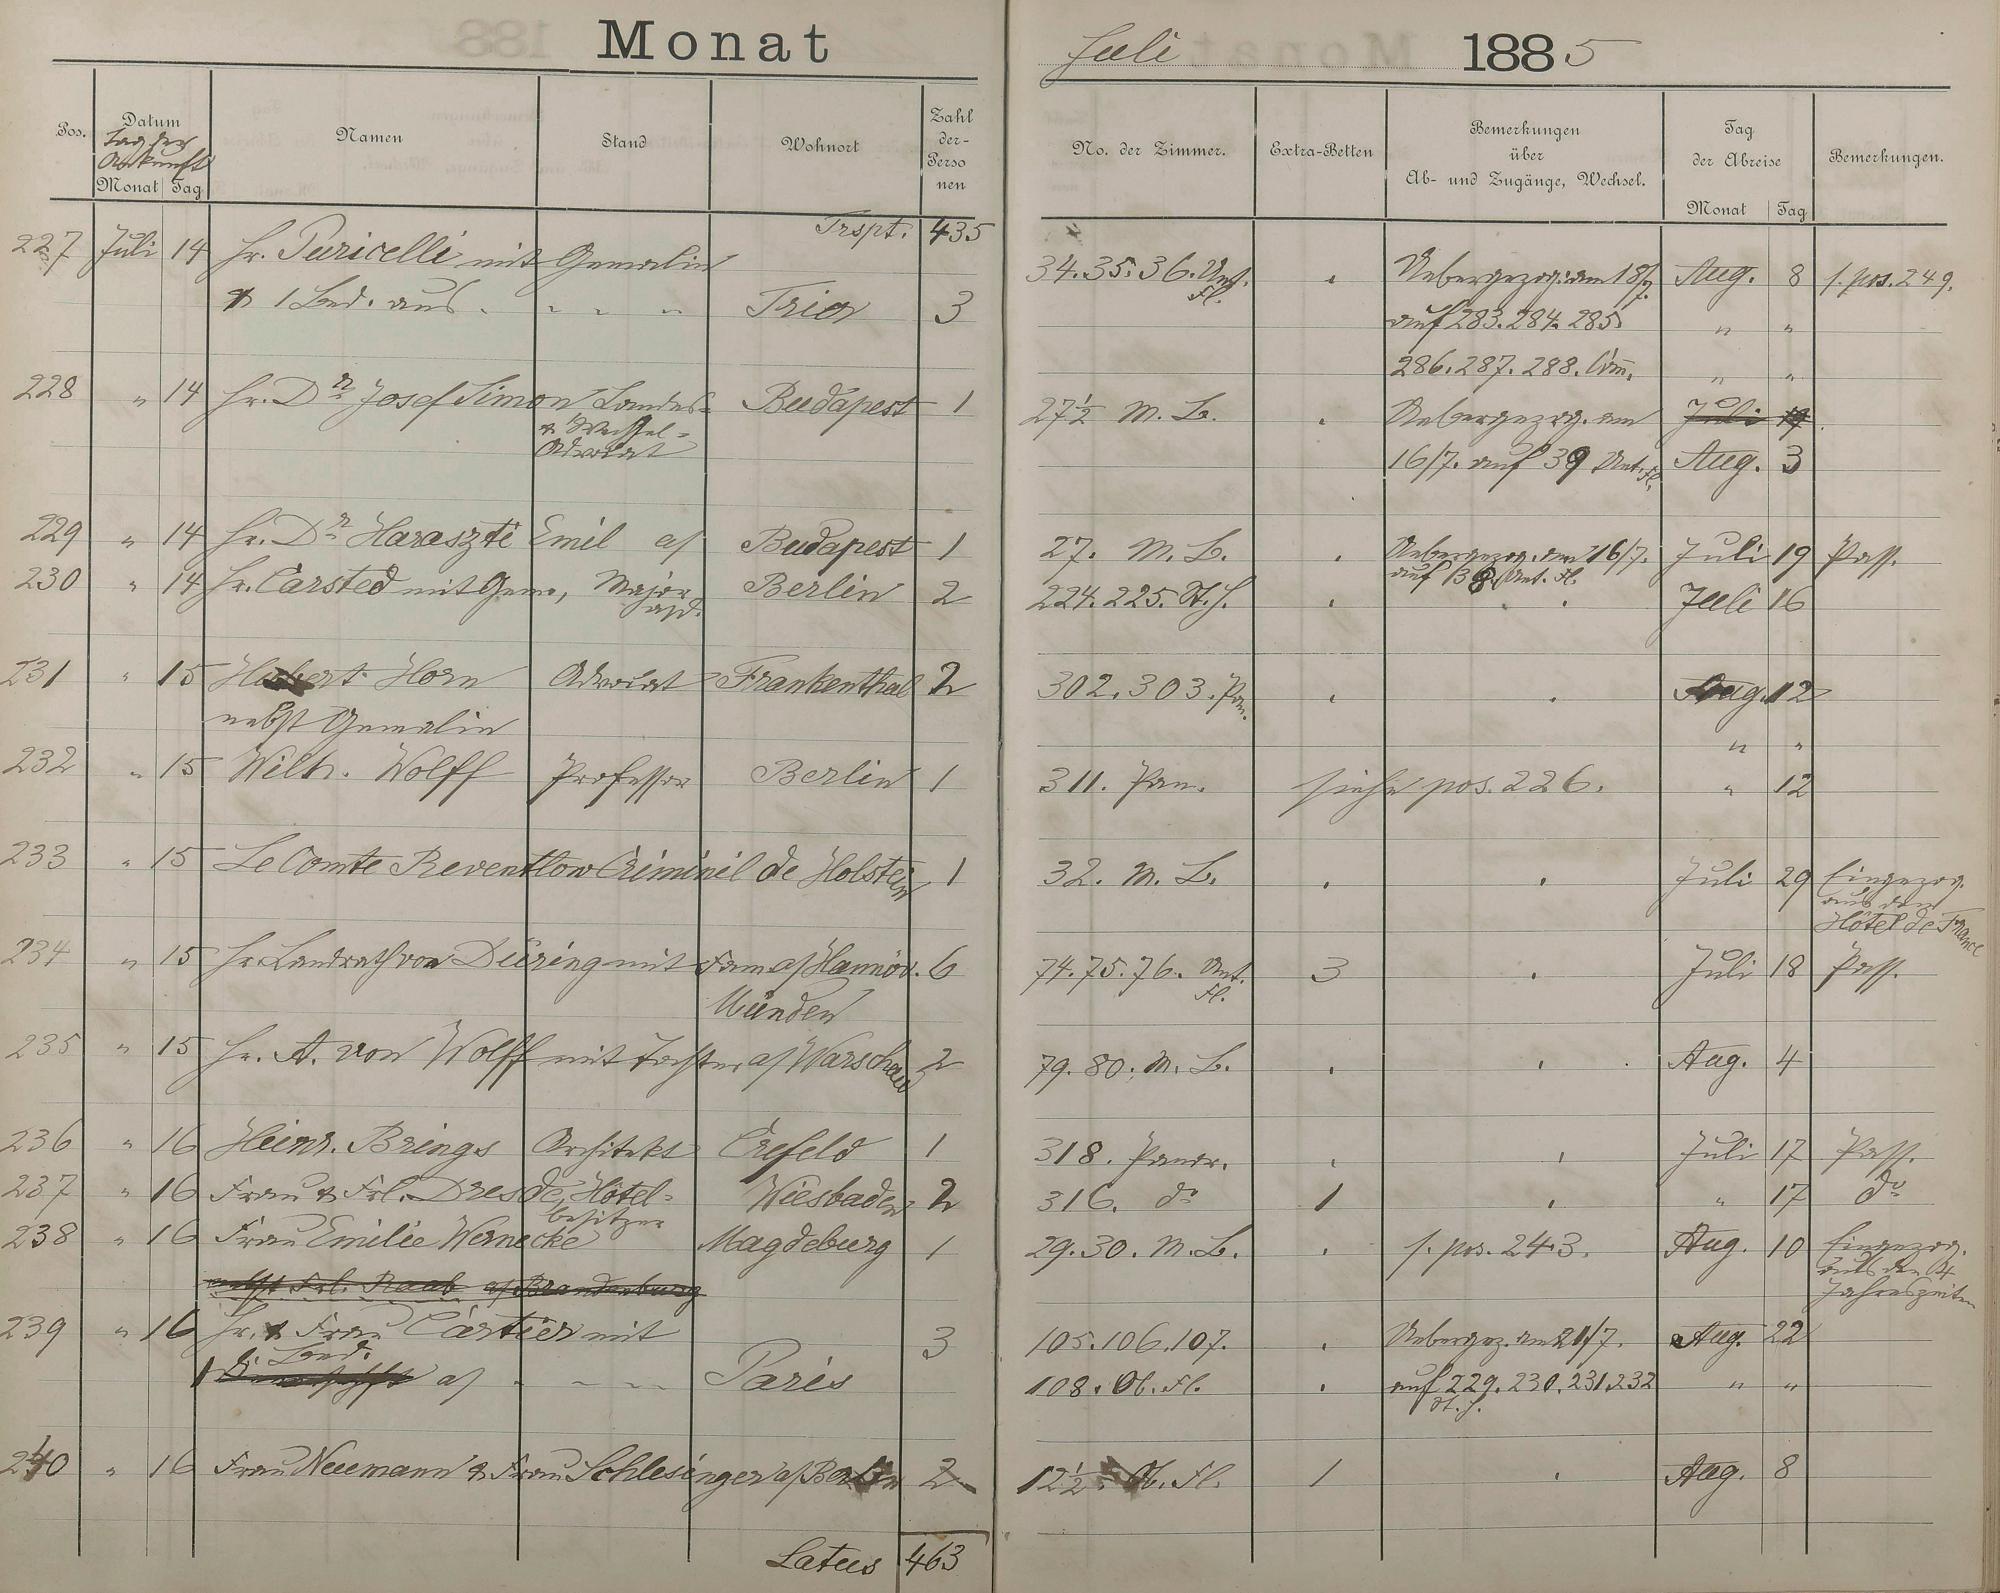 Monat
Juli 1885
Pos.
Datum
Tag der
Ankunft
Monat Tag
Namen
Stand
Wohnort
Zahl
der
Perso
nen
No. der Zimmer.
Extra-Betten
Bemerkungen
über
Ab- und Zugänge, Wechsel.
Tag
der Abreise
Monat Tag
Bemerkungen.
Trspt. 435
227 Juli 14 Hr. Puricelli mit Gemalin 34. 35. 36. Unt. Fl. Uebergezog. am 18/7. Aug. 8 s. pos. 249.
& 1 Bed. aus - - - - Trier 3 auf 283. 284. 285. " "
286. 287. 288. Com. " "
228 " 14 Hr. Dr Josef Simon Landes- Budapest 1 27½ M. B. Uebergezog. am Juli 19
& Wechsel-
Advocat 16/7. auf 39 Unt. Fl. Aug. 3
229 " 14 Hr. Dr Haraszti Emil a/ Budapest 1 27. M. B. Uebergezog. am 16/7. Juli 19 Pass.
auf 38 Unt. Fl.
230 " 14 Hr. Carsted mit Gem., Major Berlin 2 224. 225. St. H. Juli 16
a/D.
231 " 15 Hubert Horn Advocat Frankenthal 2 302. 303. Pan. Aug. 12
nebst Gemalin " "
232 " 15 Wilh. Wolff Professor Berlin 1 311. Pan. siehe pos. 226. " 12
233 " 15 Le Comte Reventlow Criminil de Holstein 1 32. M. B. Juli 29 Eingezog.
aus dem
Hôtel de France
234 " 15 Hr. Landrath von Düring mit Fam a/ Hannov. 6 74. 75. 76. Unt. Fl. 3 Juli 18 Pass.
Münden
235 " 15 Hr. A. von Wolff mit Tochter a/ Warschau 2 79. 80. M. B. Aug. 4
236 " 16 Heinr. Brings Architekt Crefeld 1 318. Panor. Juli 17 Pass.
237 " 16 Frau & Frl. Dresde, Hôtel- Wiesbaden 2 316. do 1 " 17 do
besitzer
238 " 16 Frau Emilie Wernecke Magdeburg 1 29. 30. M. B. s. pos. 243. Aug. 10 Eingezog.
aus den 4
Jahreszeiten
nebst Frl. Raab a/ Brandenburg
239 " 16 Hr. & Frau Cartier mit 3 105. 106. 107. Uebergez. am 21/7. Aug. 22
1 Bed. a/ - - - - Paris 108. Ob. Fl. auf 229. 230. 231. 232 " "
St. H.
240 " 16 Frau Neumann & Frau Schlesinger a/ Berlin 2 12½. Ob. Fl. 1 Aug. 8
Latus 463